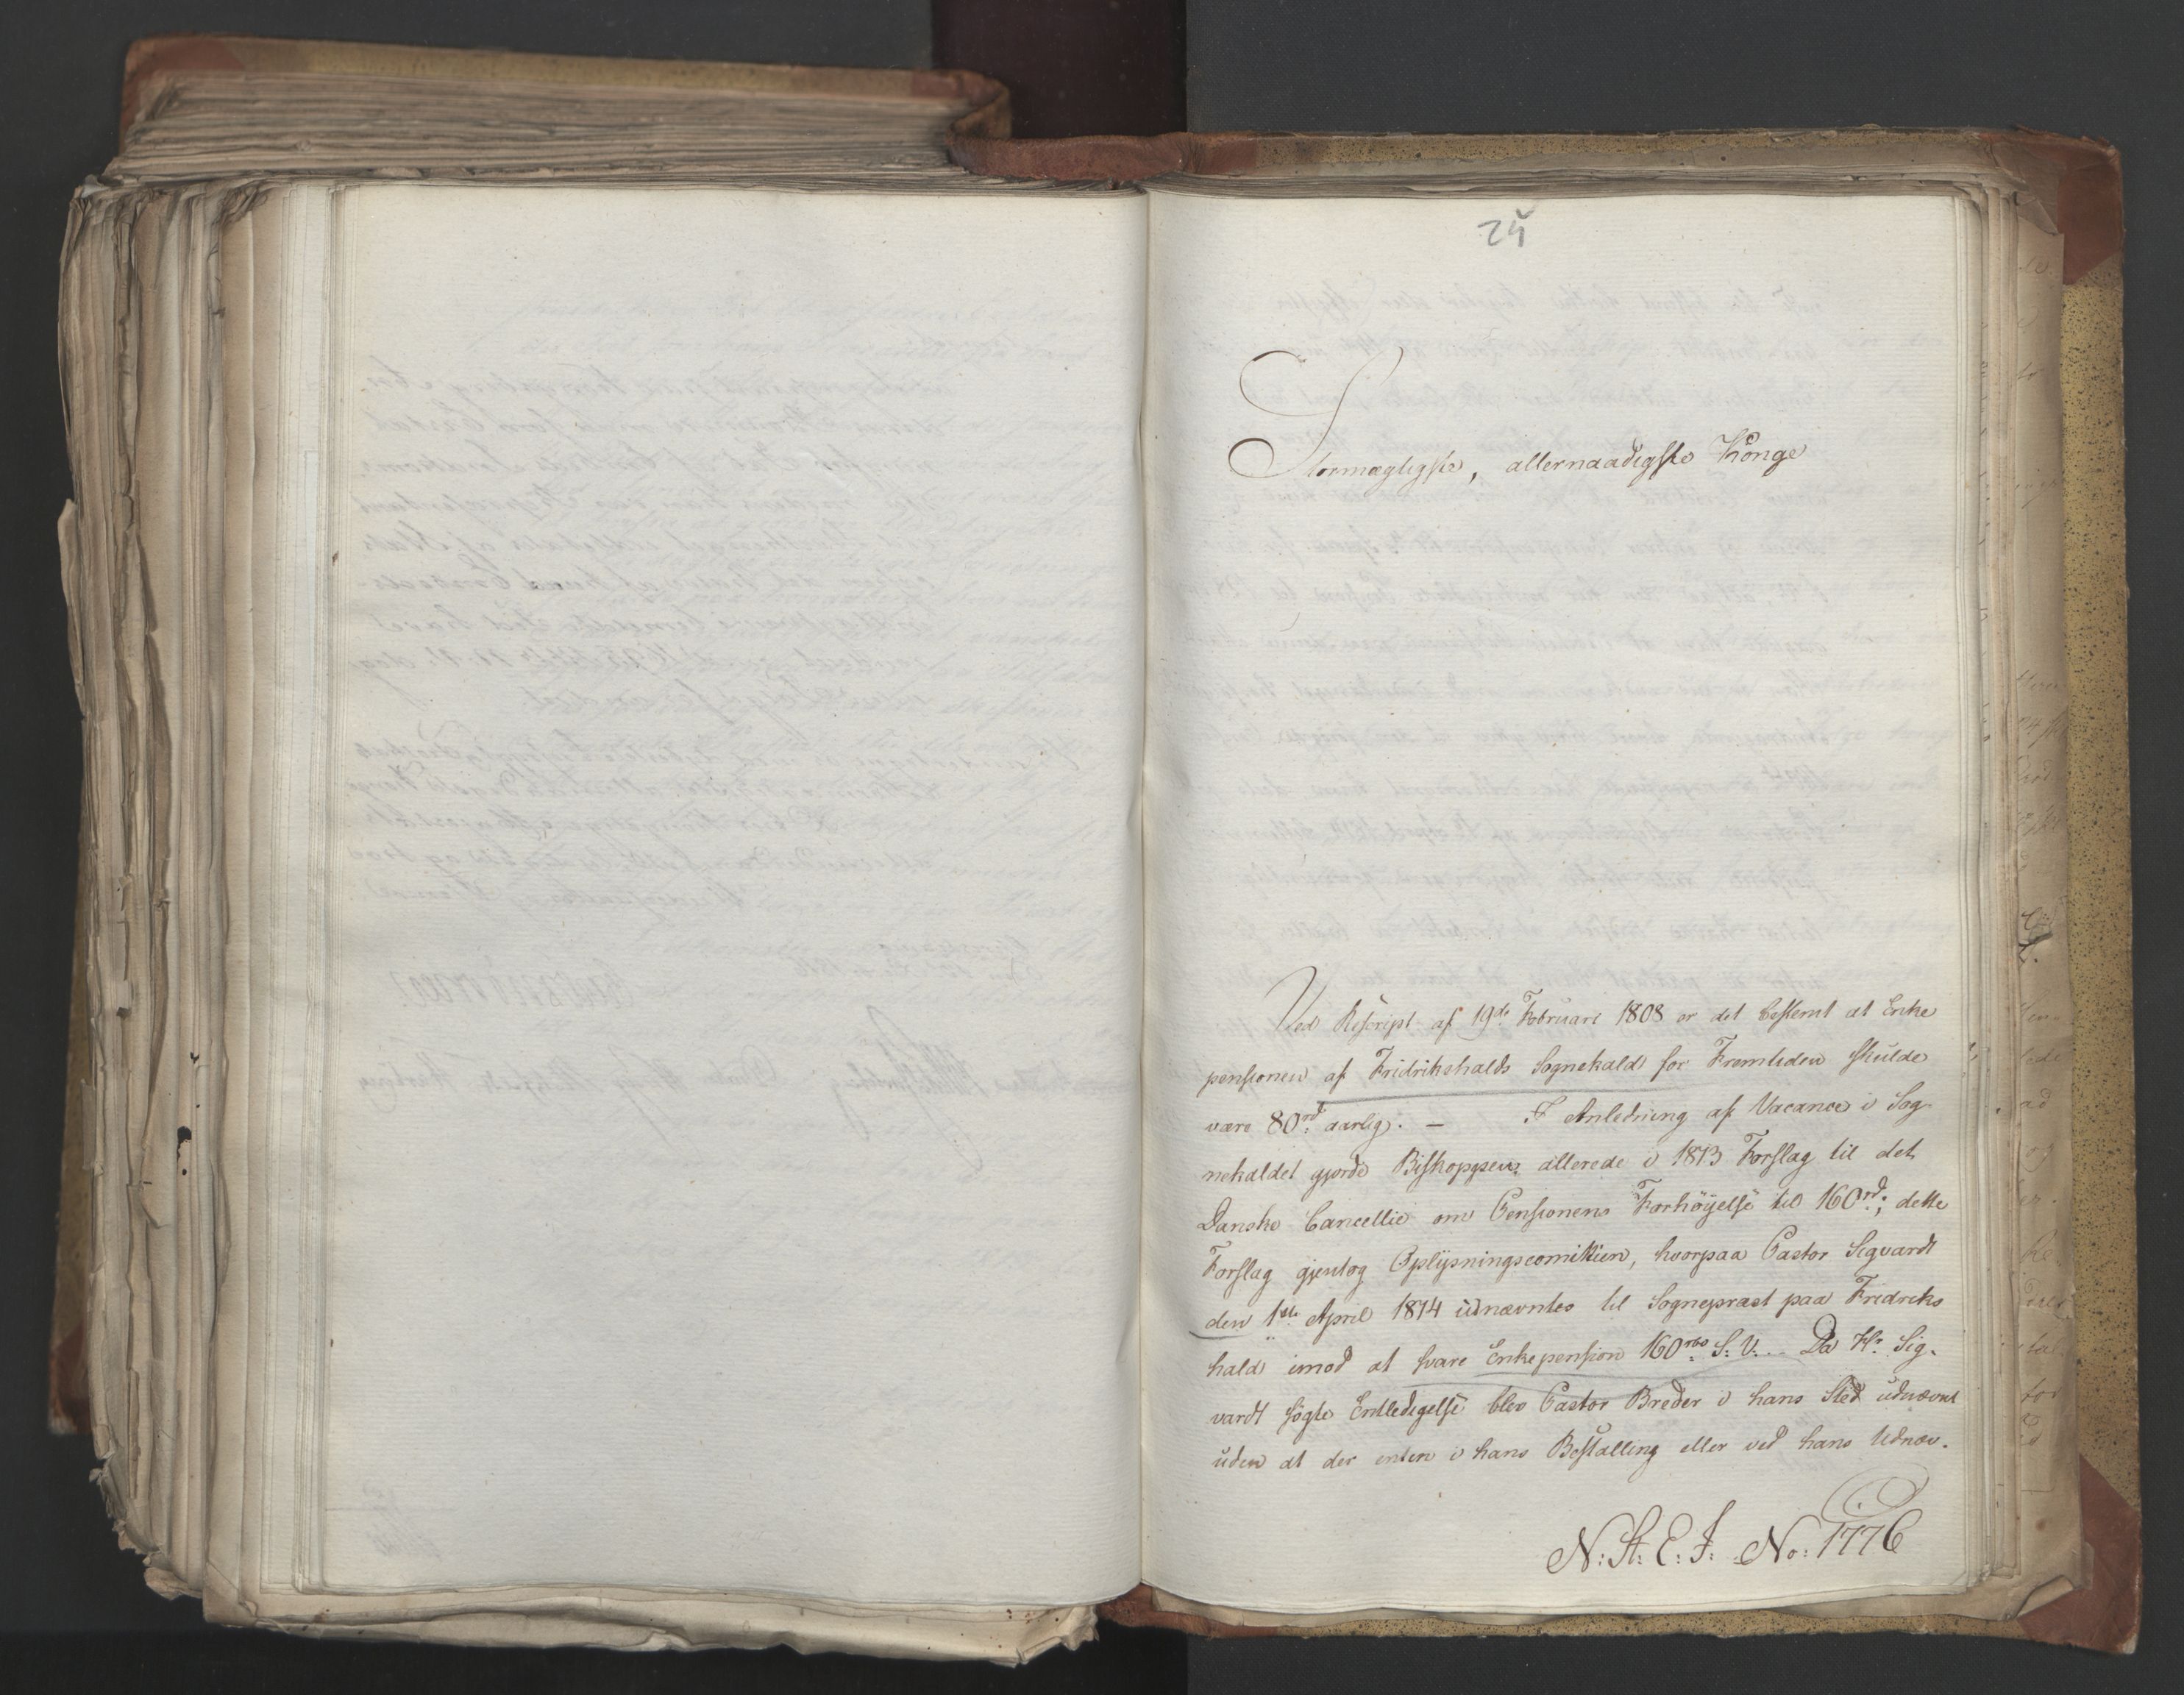 25
Stormægtigste, allernaadigste Konge
Ved Rescript af 19de Februari 1808 er det bestemt at Enke
pensionen af Fridrikshalds Sognekald for Fremtiden skulde
være 80rd aarlig. – I Anledning af Vacance i Sog
nekaldet gjorde Biskoppen allerede i 1813 Forslag til det
Danske Cancellie om Pensionens Forhöÿelse til 160rd; dette
Forslag gjentog Oplÿsningscomitteen, hvorpaa Pastor Sigvardt
den 1ste April 1814 udnævntes til Sognepræst paa Fridriks
hald imod at svare Enkepension 160rbd S: V:.. Da Hr. Sig-
vardt søgte Entledigelse blev Pastor Breder i hans Sted udnævnt
uden at der enten i hans Bestalling eller ved hans Udnæv-
N: St: E: I: No: 1776